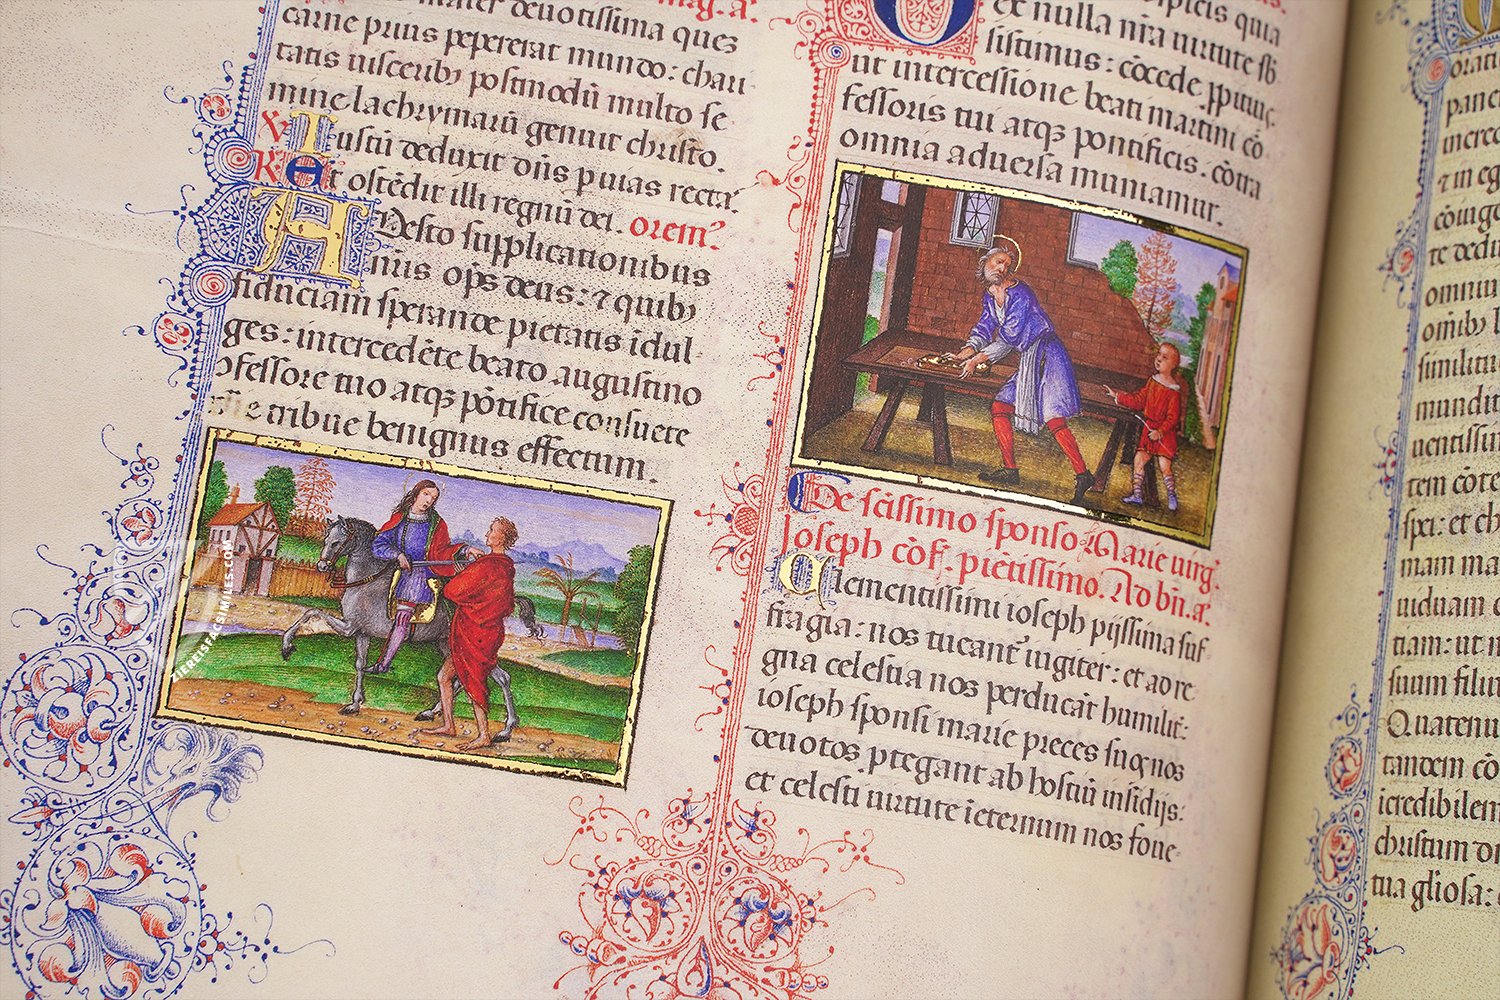 mater devotissima ques
mag. a.
carne prius pepererat mundo: chari
tatis visceribꝰ postmodū multo se
mine lachrymarū genuit christo.
℣ Iustū deduxit dn̄s p vias recta.
℟ Et ostēdit illi regnū dei. orem̄.
ADesto supplicationibus
n̄ris op̄s deus: ⁊ quibꝰ
fiduciam sperande pietatis īdul
ges: intercedēte beato augustino
ɔfessore tuo atqꝫ pōtifice consuete
tribue benignus effectum.
quia
ex nulla nr̄a virtute sb
sistimus: cōcede ꝓpitius
ut intercessione beati martini cō
fessoris tui atqꝫ pontificis. cōtra
omnia adversa muniamur.
De scīssimo sponso Marie virg.
Ioseph cōf. pietissimo. Ad bn̄. a.
Clementissimi ioseph pijssima suf
fragia: nos tueant̄ iugiter: et ad re
gna celestia nos perducāt humilit̄:
ioseph sponsi marie preces suosqꝫ nos
devotos ptegant ab hostiū insidijs:
et celesti virtute īeternum nos fove
orati
panc
merce
⁊ in eg
cōiuge
te dedu
omniu
om̄ibꝰ
similitu
mundit
uentissim
tem cōte
spei: et ch
mam ma
uiduam
tiam: ut n
suum filiu
Quatenu
tandem cō
icredibilem
christum do
tua gl̄iosa:
ZIEREISFACSIMILES.COM